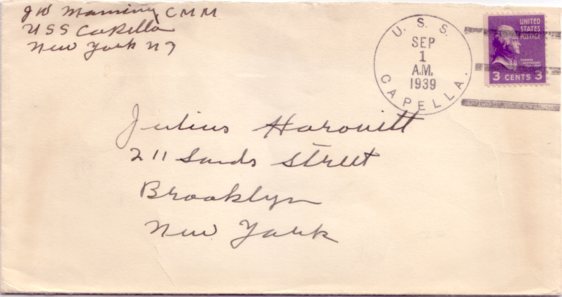 J W Manning CMM
USS Capella
New York NY
U. S. S.
SEP
1
A.M.
1939
CAPELLA.
UNITED
STATES
POSTAGE
3 CENTS 3
Julius Harowitt
211 Sands Street
Brooklyn
New York